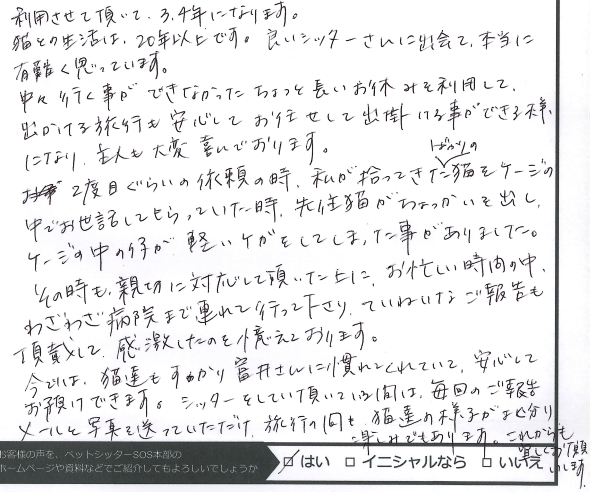 利用させて頂いて、3.4年になります。
猫との生活は、20年以上です。良いシッターさんに出会て、本当に
有難く思っています。
中々行く事ができなかったちょっと長いお休みを利用して、
出かける旅行も安心してお任せして出掛ける事ができる様
になり、主人も大変喜んでおります。
2度目ぐらいの依頼の時、私が拾ってきたばかりの猫をケージの
中でお世話してもらっていた時、先住猫がちょっかいを出し、
ケージの中の仔が軽いケガをしてしまった事がありました。
その時も、親切に対応して頂いた上に、お忙しい時間の中、
わざわざ病院まで連れて行って下さり、ていねいなご報告も
頂戴して、感激したのを憶えております。
今では、猫達もすっかり富井さんに慣れてくれていて、安心して
お預けできます。シッターをして頂いている間は、毎回のご報告
メールと写真を送っていただけ、旅行の間も、猫達の様子がよく分り
楽しみでもあります。これからも
宜しくお願
いします。
お客様の声を、ペットシッターSOS本部の
ホームページや資料などでご紹介してもよろしいでしょうか
☑ はい □ イニシャルなら □ いいえ